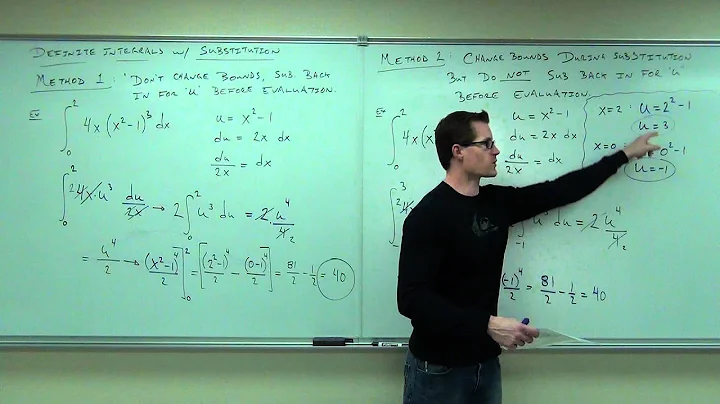 DEFINITE INTEGRALS W/ SUBSTITUTION
METHOD 1: "DON'T CHANGE BOUNDS, SUB. BACK
IN FOR 'U' BEFORE EVALUATION.
Ex
∫₀² 4x(x²-1)³ dx
u = x²-1
du = 2x dx
du/2x = dx
∫₀² 4x·u³ du/2x → 2∫₀² u³ du = 2·u⁴/4₂
= u⁴/2 → (x²-1)⁴/2 |₀² = [(2²-1)⁴/2 - (0-1)⁴/2] = 81/2 - 1/2 = 40
METHOD 2: CHANGE BOUNDS DURING SUBSTITUTION
BUT DO NOT SUB BACK IN FOR 'U'
BEFORE EVALUATION.
Ex
∫₀² 4x(x
u = x²-1
du = 2x dx
du/2x = dx
x=2: u = 2²-1
u = 3
x=0
0²-1
u = -1
u³ du = 2u⁴/4₂
(-1)⁴/2 = 81/2 - 1/2 = 40